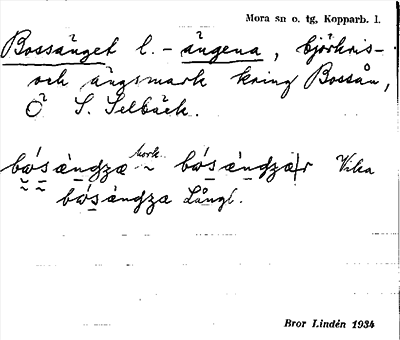 Mora sn o. tg, Kopparb. l.
Bossänget l. - ängena, björkris-
och ängsmark kring Bossån,
Ö S. Selbäck.
kork.
bǿsèŋdza ~ bǿsèŋdzar Vika
bǿsèŋdza Långl.
Bror Lindén 1934